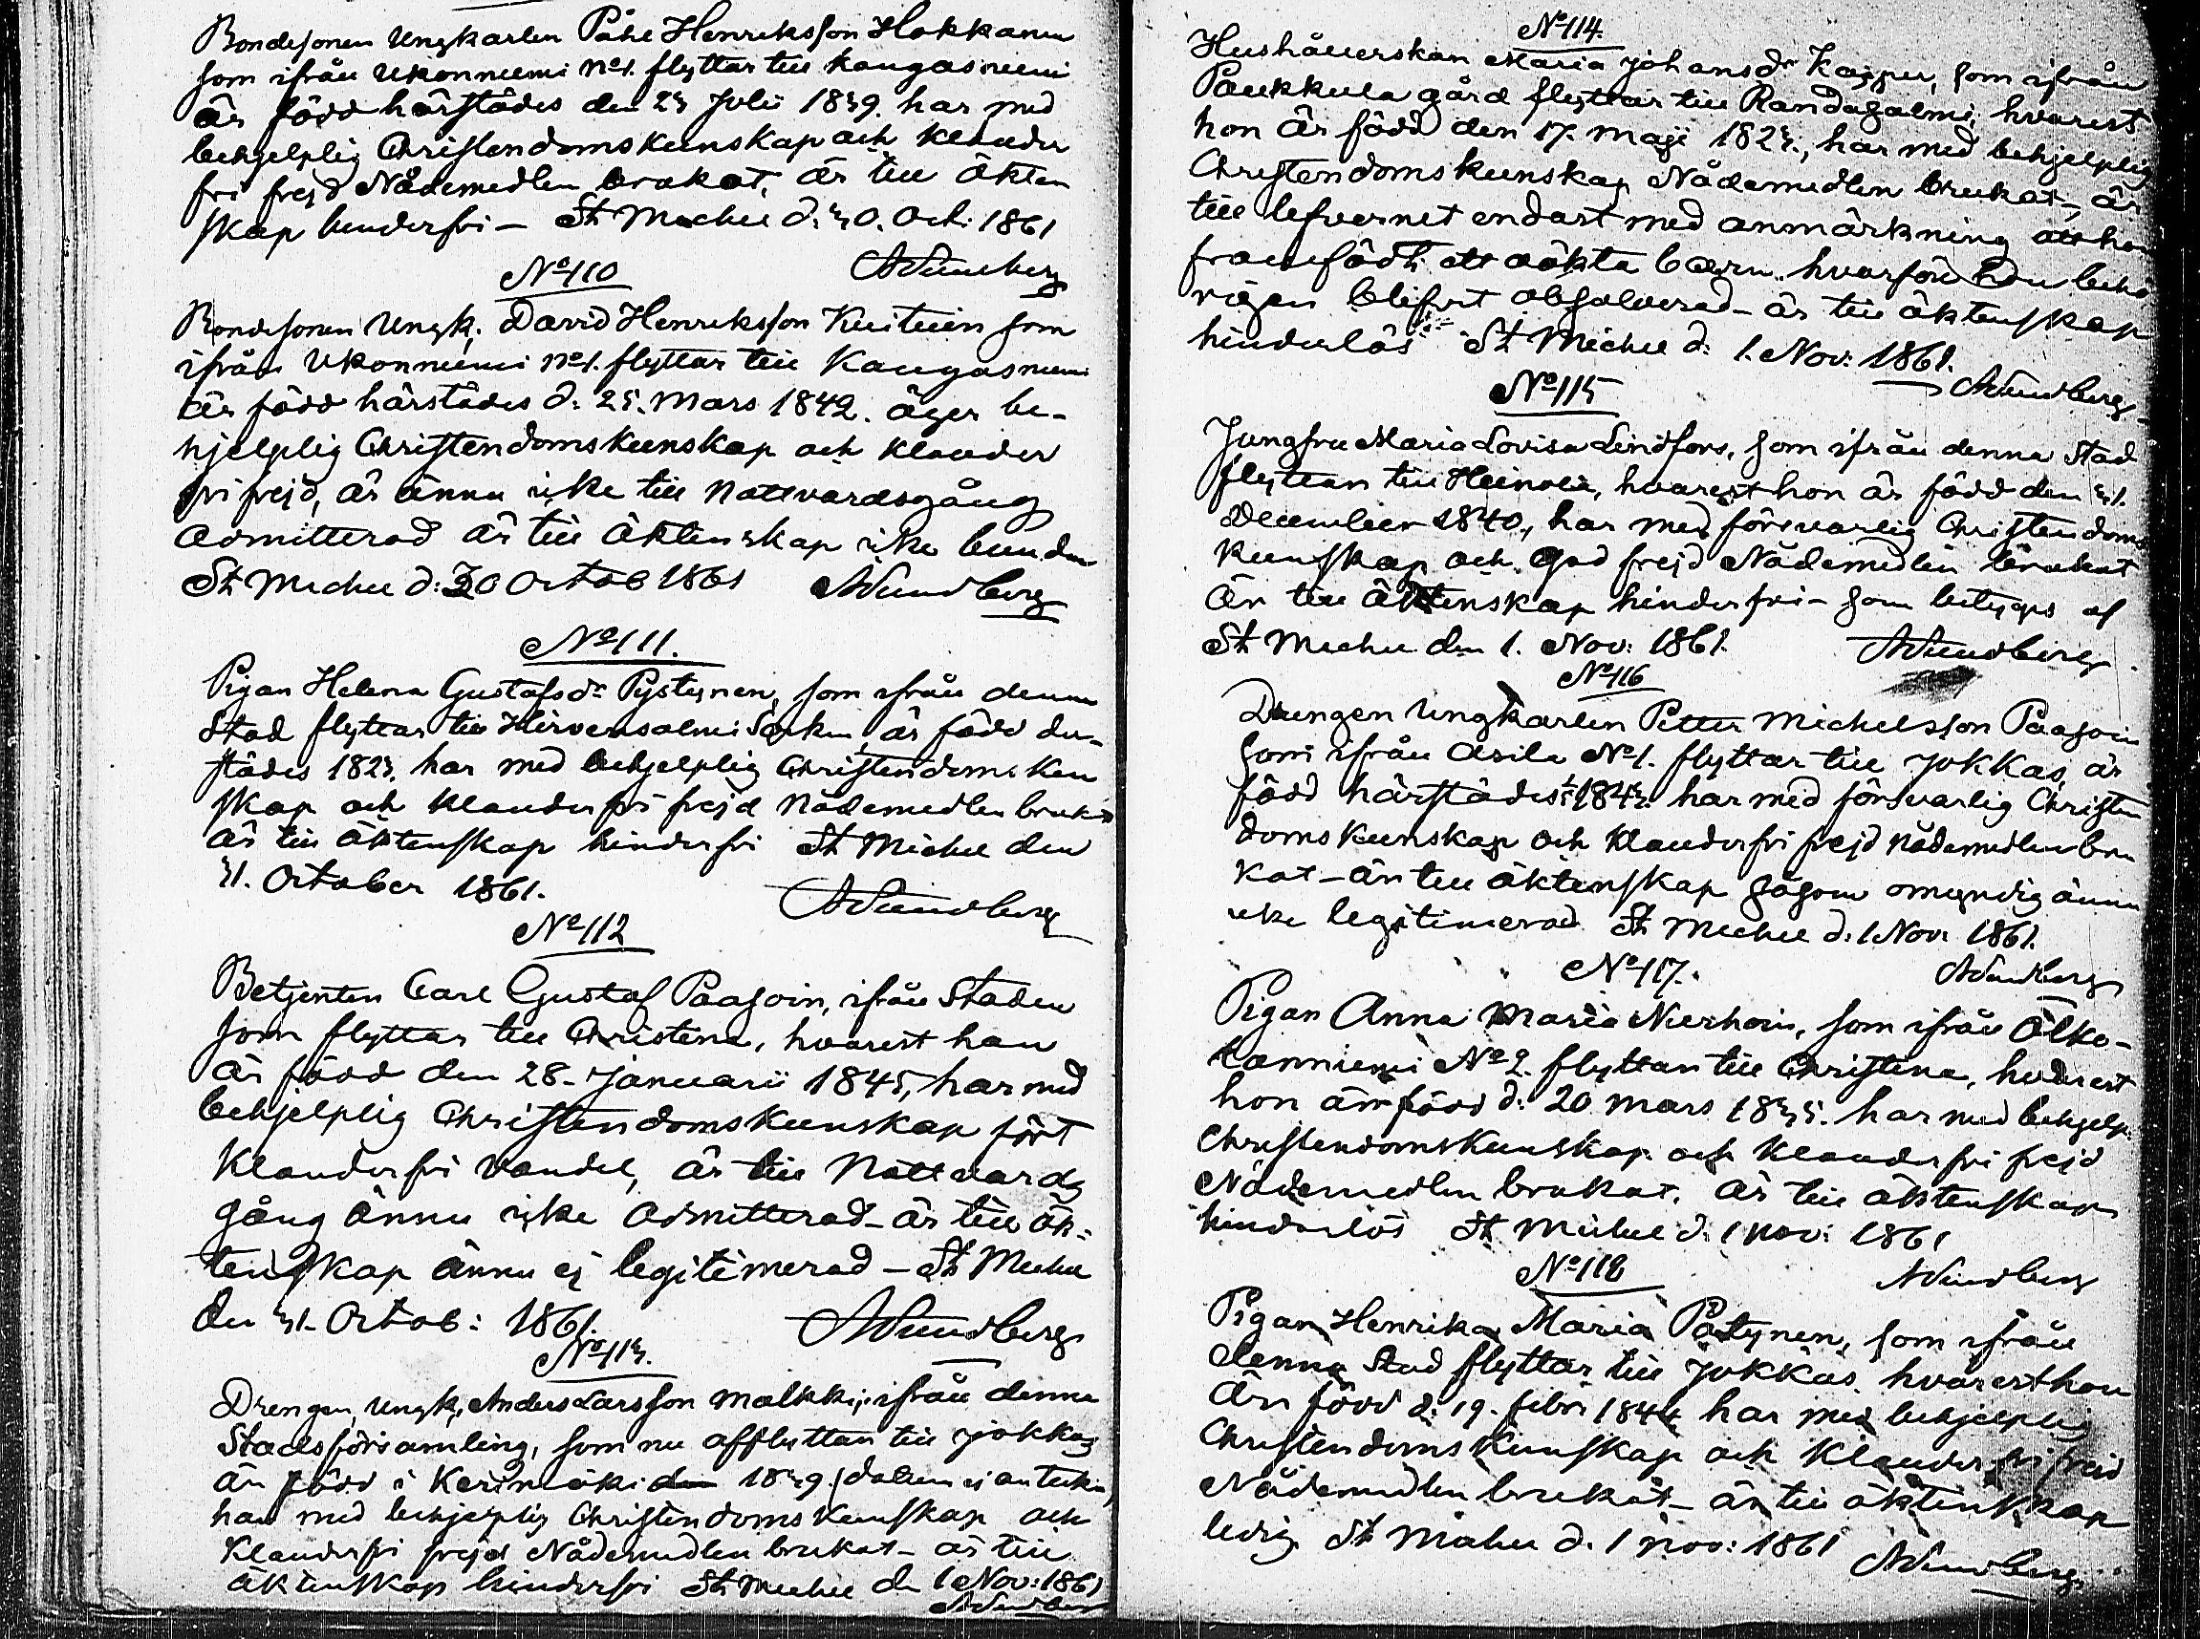 Bondesonen Ungkarlen Påhl Henriksson Hokkanen
som ifrån Ukonniemi No 1. flyttar till Kangasniemi
är född härstädes den 23 Julii 1839. har med
behjelplig Christendomskunskap och klander
fri frejd Nådemedlen brukat, är till äkten
skap hinderfri – St Michel d: 30. Oct: 1861
ASundberg
No 110
Bondesonen Ungk. David Henriksson Kuituin som
ifrån Ukonniemi No 1. flyttar till Kangasniemi
är född härstädes d: 25. Mars 1842. äger be-
hjelplig Christendomskunskap och klander
fri frejd, är ännu icke till Nattvardsgång
admitterad är till Äktenskap icke bunden
St Michel d: 30 Octob 1861 ASundberg
No 111.
Pigan Helena Gustafsdr Pystynen, som ifrån denna
Stad flyttar till Hirvensalmi Sockn, är född der-
städes 1823. har med behjelplig Christendoms kun
skap och klanderfri frejd Nådemedlen brukat
är till äktenskap hinderfri St Michel den
31. October 1861.
ASundberg
No 112
Betjenten Carl Gustaf Paasoin, ifrån Staden
som flyttar till Christina, hvarest han
är född den 28. Januarii 1845, har med
behjelplig Christendomskunskap fört
Klanderfri vandel, är till Nattvards
gång ännu icke admitterad – är till äk-
tenskap ännu ej legitimerad – St Michel
den 31. Octob: 1861. ASundberg
No 113.
Drengen, Ungk, Anders Larsson Malkki, ifrån denna
Stadsförsamling, som nu afflyttar till Jokkas
är född i Kerimäki den 1839 (datum ej anteckn)
har med behjelplig Christendoms kunskap och
Klanderfri frejd Nådemedlen brukat – är till
äktenskap hinderfri St Michel den 1 Nov: 1861
ASundberg
No 114.
Hushållerskan Maria Johansdr Kajpur, som ifrån
Paukkula gård flyttar till Randasalmi, hvarest
hon är född den 17. Maji 1823., har med behjelplig
Christendomskunskap Nådemedlen brukat, är
till lefvernet endast med anmärkning att hon
framfödt ett oäkta barn. hvarföre hon behö
rigen blifvit absolverad – är till äktenskap
hinderlös St Michel d: 1. Nov: 1861.
ASundberg
No 115
Jungfru Maria Lovisa Lindfors, som ifrån denna Stad
flyttar till Heinola, hvarest hon är född den 31.
December 1840, har med försvarlig Christendoms
kunskap och god frejd Nådemedlen brukat
är till Äktenskap hinderfri – som betygas af
St Michel den 1. Nov: 1861. ASundberg
No 116
Drengen Ungkarlen Petter Michelsson Paasoin
som ifrån Asila No 1. flyttar till Jokkas, är
född härstädes 1843. har med försvarlig Christen
doms kunskap och klanderfri frejd nådemedlen bru
kat – är till äktenskap såsom omyndig ännu
icke legitimerad St Michel d: 1 Nov: 1861.
ASundberg
No 117.
Pigan Anna Maria Nierhoin, som ifrån Olko-
kanniemi No 2. flyttar till Christina, hvarest
hon är född d: 20 Mars 1835. har med behjelp.
Christendomskunskap och Klanderfri frejd
Nådemedlen brukat. är till äktenskap
hinderlös St Michel d: 1 Nov: 1861
ASundberg
No 118
Pigan Henrika Maria Pöstynen, som ifrån
denna Stad flyttar till Jokkas. hvarest hon
är född d: 19. febr: 1844 har med behjelplig
Christendoms Kunskap och Klanderfri frejd
Nådemedlen brukat – är till äktenskap
ledig St Michel d. 1 Nov: 1861
ASundberg